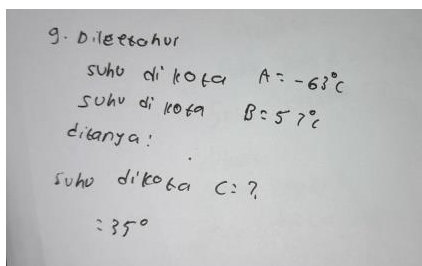 9. Diketahui
suhu di kota A = -63°C
suhu di kota B = 57°C
ditanya:
suhu dikota C = ?
= 35°